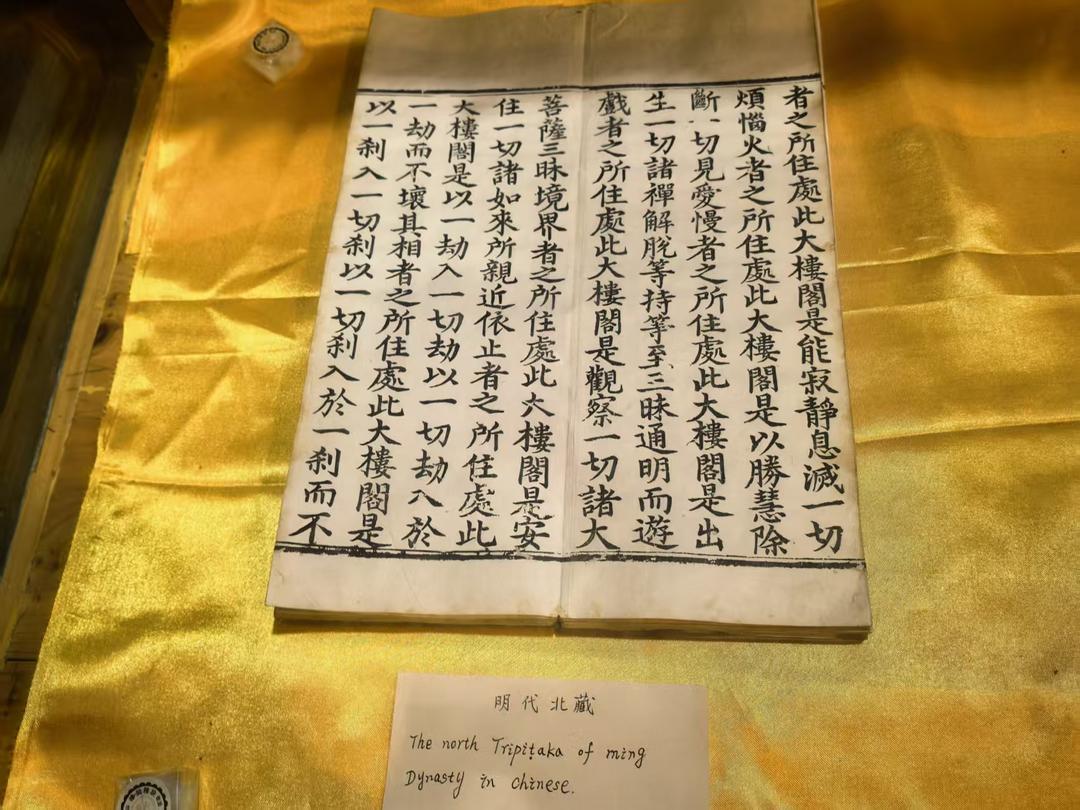 者之所住處此大樓閣是能寂靜息滅一切
煩惱火者之所住處此大樓閣是以勝慧除
斷一切見愛慢者之所住處此大樓閣是出
生一切諸禪解脫等持等至三昧通明而遊
戲者之所住處此大樓閣是觀察一切諸大
菩薩三昧境界者之所住處此大樓閣是安
住一切諸如來所親近依止者之所住處此
大樓閣是以一劫入一切劫以一切劫入於
一劫而不壞其相者之所住處此大樓閣是
以一剎入一切剎以一切剎入於一剎而不
明代北藏
The north Tripiṭaka of ming
Dynasty in chinese.